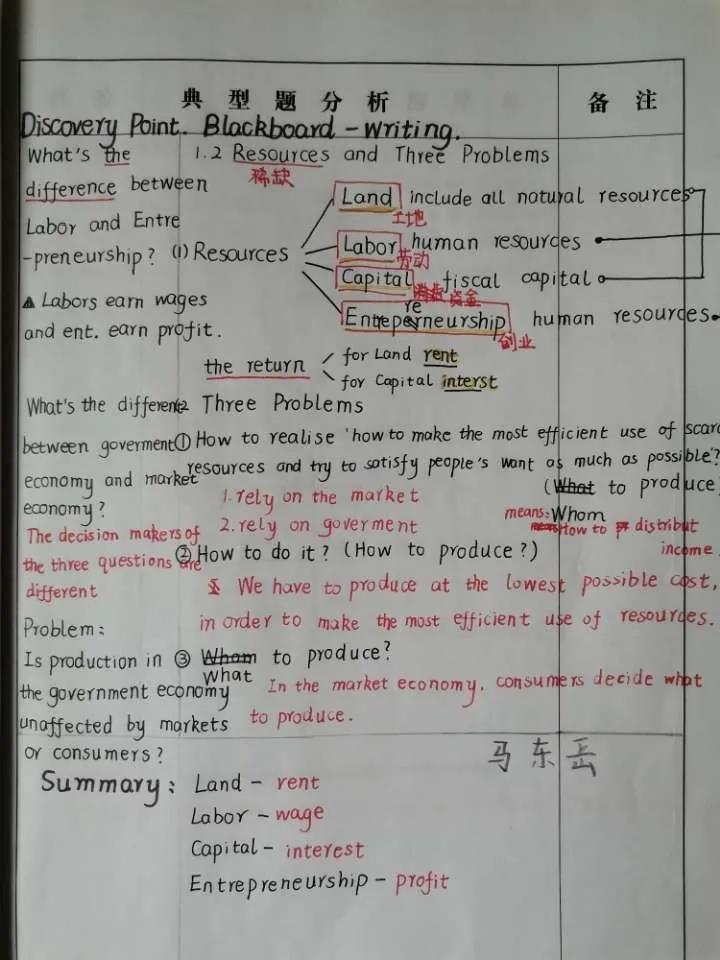 典型题分析 备注
Discovery Point. Blackboard-writing.
What's the
difference between
Labor and Entre
-preneurship?
▲ Labors earn wages
and ent. earn profit.
What's the different
between goverment
economy and market
economy?
The decision makers of
the three questions are
different
Problem:
Is production in
the government economy
unaffected by markets
or consumers?
1.2 Resources and Three Problems
稀缺
(1) Resources
Land include all natural resources
土地
Labor human resources
劳动
Capital fiscal capital
资金
Entrepreneurship human resources
创业
the return
for Land rent
for Capital interst
2 Three Problems
① How to realise 'how to make the most efficient use of scarc
resources and try to satisfy people's want as much as possible'?
(What to produce
1. rely on the market
means: Whom
2. rely on goverment
How to distribut
income
② How to do it? (How to produce?)
We have to produce at the lowest possible cost,
in order to make the most efficient use of resources.
③ Whom to produce?
What
In the market economy, consumers decide what
to produce.
马东岳
Summary: Land - rent
Labor - wage
Capital - interest
Entrepreneurship - profit